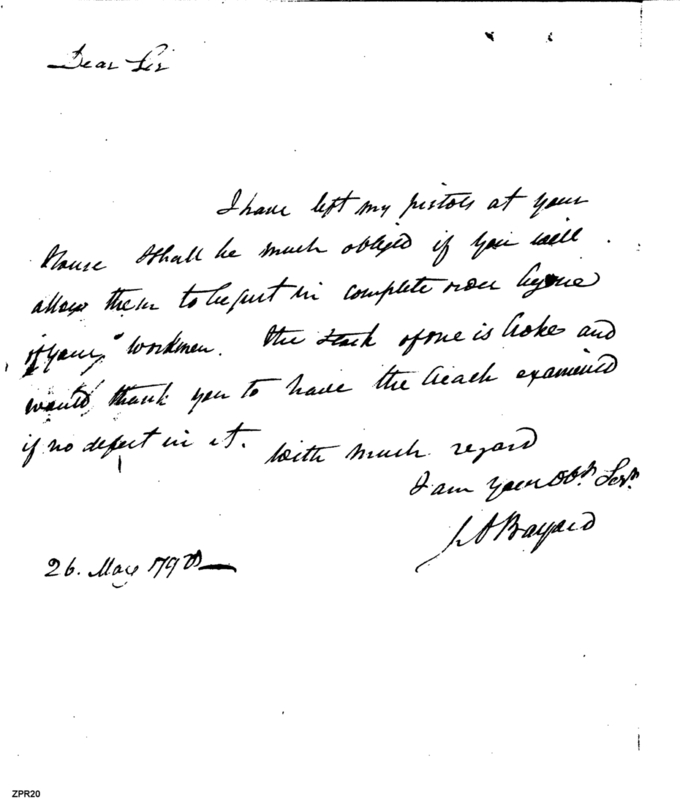 Dear Sir
I have left my pistols at your
House & shall be much obliged if you will
allow them to be put in complete order by one
of your workmen. The stock of one is broke and
would thank you to have the breach examined
if no defect in it. With much regard
I am your Obt. Servt.
J A Bayard
26. May 179
ZPR20